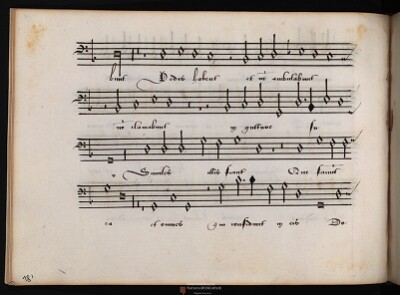 bunt Pedes habent et nō ambulabunt
nō clamabunt in gutture su
o Similes illis fiant Qui faciūt
ea et omnes qui confidunt in eis Do